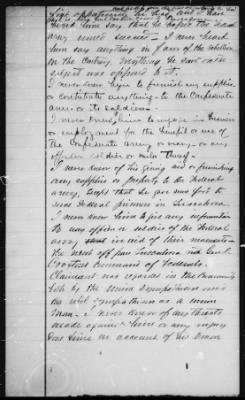 heard him say that he hoped the Federal
army would succeed – I never heard
him say anything in favor of the rebellion
or the Confederacy. Everything he said on the
subject was opposed to it.
I never knew him to furnish any supplies
or contribute anything to the Confederate
army or its soldiers
I never knew him to engage in business
or employment for the benefit or use of
the Confederate army or navy or any
officer, soldier or sailor thereof –
I never knew of his giving aid or furnishing
any supplies or property to the Federal
army, except that he gave some food to
some Federal prisoners in Tuscaloosa.
I never knew him to give any information
to any officer or soldier of the Federal
army in aid of their
He went off from Tuscaloosa with Genl.
Croxton's command of Federals.
Claimant was regarded in the community
both by the Union sympathisers and
the rebel sympathisers as a union
man – I never knew of any threats
made against him or any injury
done him on account of his Union